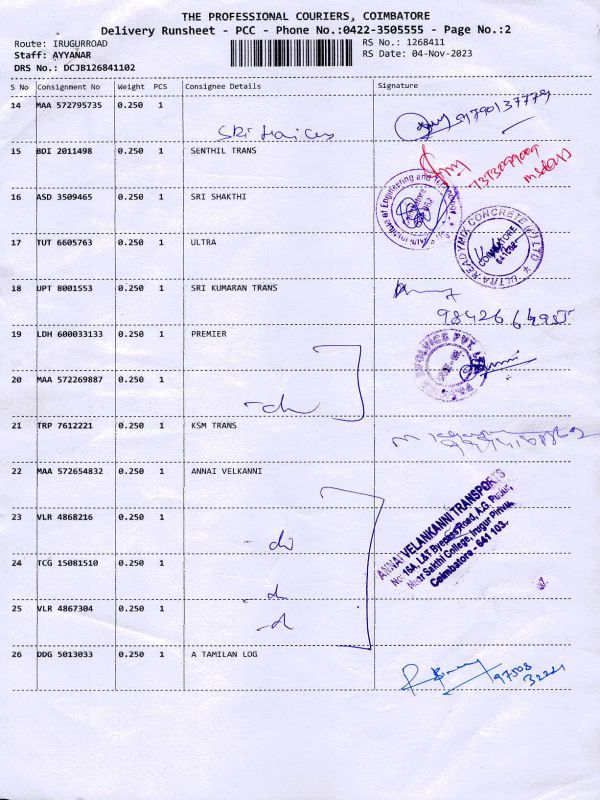 THE PROFESSIONAL COURIERS, COIMBATORE
Delivery Runsheet - PCC - Phone No.:0422-3505555 - Page No.:2
Route: IRUGURROAD
Staff: AYYANAR
DRS No.: DCJB126841102
RS No.: 1268411
RS Date: 04-Nov-2023
S No Consignment No Weight PCS Consignee Details Signature
14 MAA 572795735 0.250 1
15 BDI 2011498 0.250 1 SENTHIL TRANS
16 ASD 3509465 0.250 1 SRI SHAKTHI
17 TUT 6605763 0.250 1 ULTRA
ULTRA READYMIX CONCRETE (P) LTD
COIMBATORE
18 UPT 8001553 0.250 1 SRI KUMARAN TRANS
98426 64955
19 LDH 600033133 0.250 1 PREMIER
20 MAA 572269887 0.250 1
21 TRP 7612221 0.250 1 KSM TRANS
22 MAA 572654832 0.250 1 ANNAI VELKANNI
ANNAI VELANKANNI TRANSPORTS
No: 16A, L&T Byepass Road, A.G. Pudur,
Near Sakthi College, Irugur Pirivu,
Coimbatore - 641 103.
23 VLR 4868216 0.250 1
24 TCG 15081510 0.250 1
25 VLR 4867304 0.250 1
26 DDG 5013033 0.250 1 A TAMILAN LOG
97508